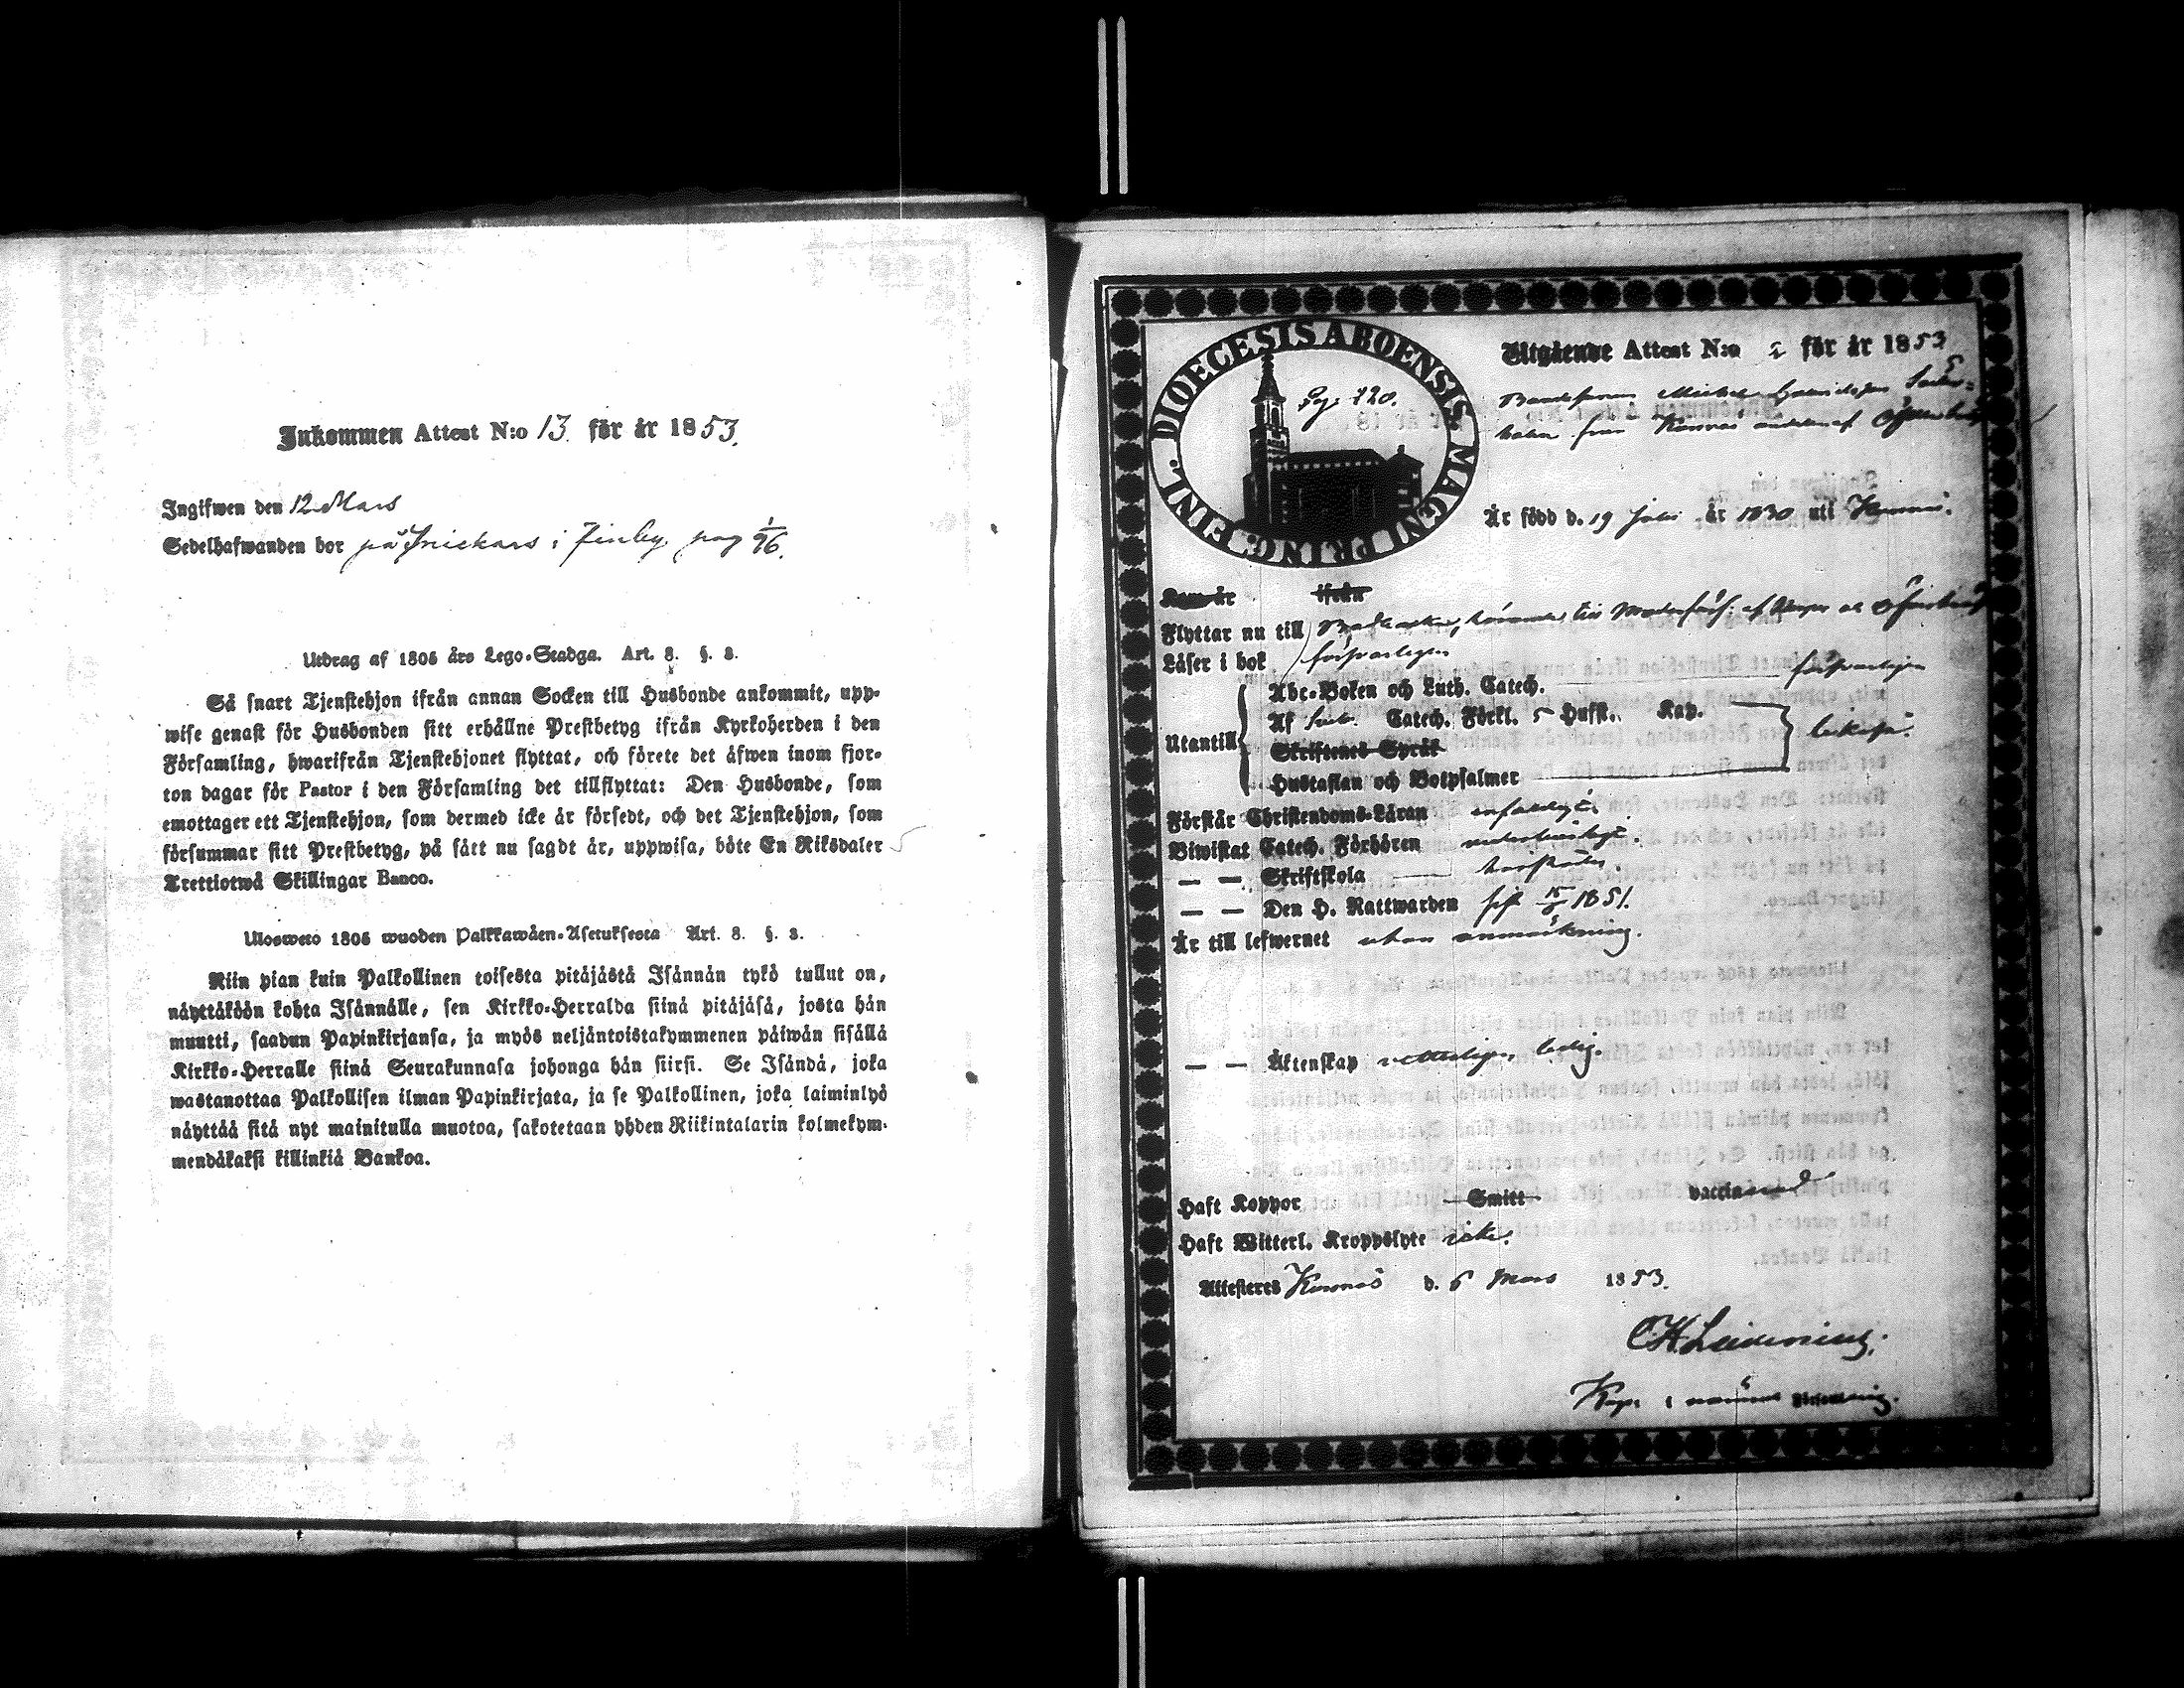 Inkommen Attest N:o 13 för år 1853.
Ingifwen den 12 Mars
Sedelhafwanden bor på Snickars i Finby pag 1/96.
Utdrag af 1805 års Lego-Stadga. Art. 8. §. 3.
Så snart Tjenstehjon ifrån annan Socken till Husbonde ankommit, upp-
wise genast för Husbonden sitt erhållne Prestbetyg ifrån Kyrkoherden i den
Församling, hwarifrån Tjenstehjonet flyttat, och förete det äfwen inom fjor-
ton dagar för Pastor i den Församling det tillflyttat: Den Husbonde, som
emottager ett Tjenstehjon, som dermed icke är försedt, och det Tjenstehjon, som
försummar sitt Prestbetyg, på sätt nu sagdt är, uppwisa, böte En Riksdaler
Trettiotwå Skillingar Banco.
Ulosweto 1805 wuoden Palkkawäen-Asetuksesta Art. 8. §. 3.
Niin pian kuin Palkollinen toisesta pitäjästä Isännän tykö tullut on,
näyttäköön kohta Isännälle, sen Kirkko-Herralda siinä pitäjäsä, josta hän
muutti, saadun Papinkirjansa, ja myös neljäntoistakymmenen päiwän sisällä
Kirkko-Herralle siinä Seurakunnasa johonga hän siirsi. Se Isändä, joka
wastanottaa Palkollisen ilman Papinkirjata, ja se Palkollinen, joka laiminlyö
näyttää sitä nyt mainitulla muotoa, sakotetaan yhden Riikintalarin kolmekym-
mendäkaksi killinkiä Bankoa.
DIOECESIS ABOENSIS MAGNI PRINC. FINL.
Pag. 120.
Utgående Attest N:o 2 för år 1853
Bondesonen Michel
från Korsnäs
Är född d. 19 Julii år 1830 uti Korsnäs.
Kom år ifrån
Flyttar nu till
Läser i bok försvarligen
Abc-Boken och Luth. Catech. försvarligen
Af Catech. Förkl. 5 Hufst. Kap.
Utantill
Skriftenes Språk
likaså.
Hustaflan och Botpsalmer
Förstår Christendoms-Läran enfaldigt.
Biwistat Catech. Förhören
— — Skriftskola
— — Den H. Nattwarden sist 15/ 1851.
Är till lefwernet utan anmärkning.
— — Äktenskap ledig.
Haft Koppor Smitt vaccinerad
Haft Witterl. Kroppslyte icke.
Attesteras Korsnäs d. 6 Mars 1853.
Kap. i nämnde